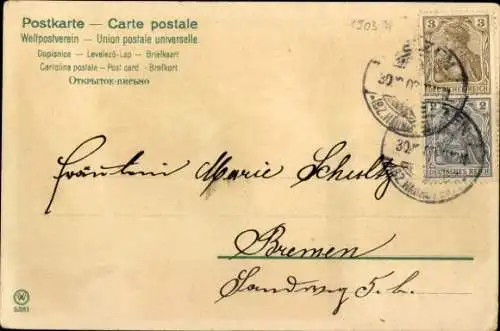 Postkarte — Carte postale
Weltpostverein — Union postale universelle
Dopisnice — Levelező-Lap — Briefkaart
Cartolina postale — Post card — Brefkort
Открытое-письмо
1903
3
DEUTSCHES REICH
2
DEUTSCHES REICH
Fräulein Marie Schultz
Bremen
Sandweg 5. b.